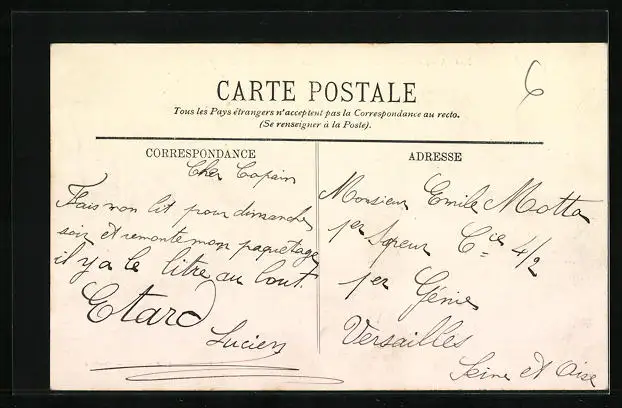 6
CARTE POSTALE
Tous les Pays étrangers n'acceptent pas la Correspondance au recto.
(Se renseigner à la Poste).
CORRESPONDANCE
Cher Copain
Fais mon lit pour dimanche
soir et remonte mon paquetage
il y a le litre au bout.
Etard
Lucien
ADRESSE
Monsieur Emile Motta
1er Sapeur Cie 4/2
1er Génie
Versailles
Seine et Oise